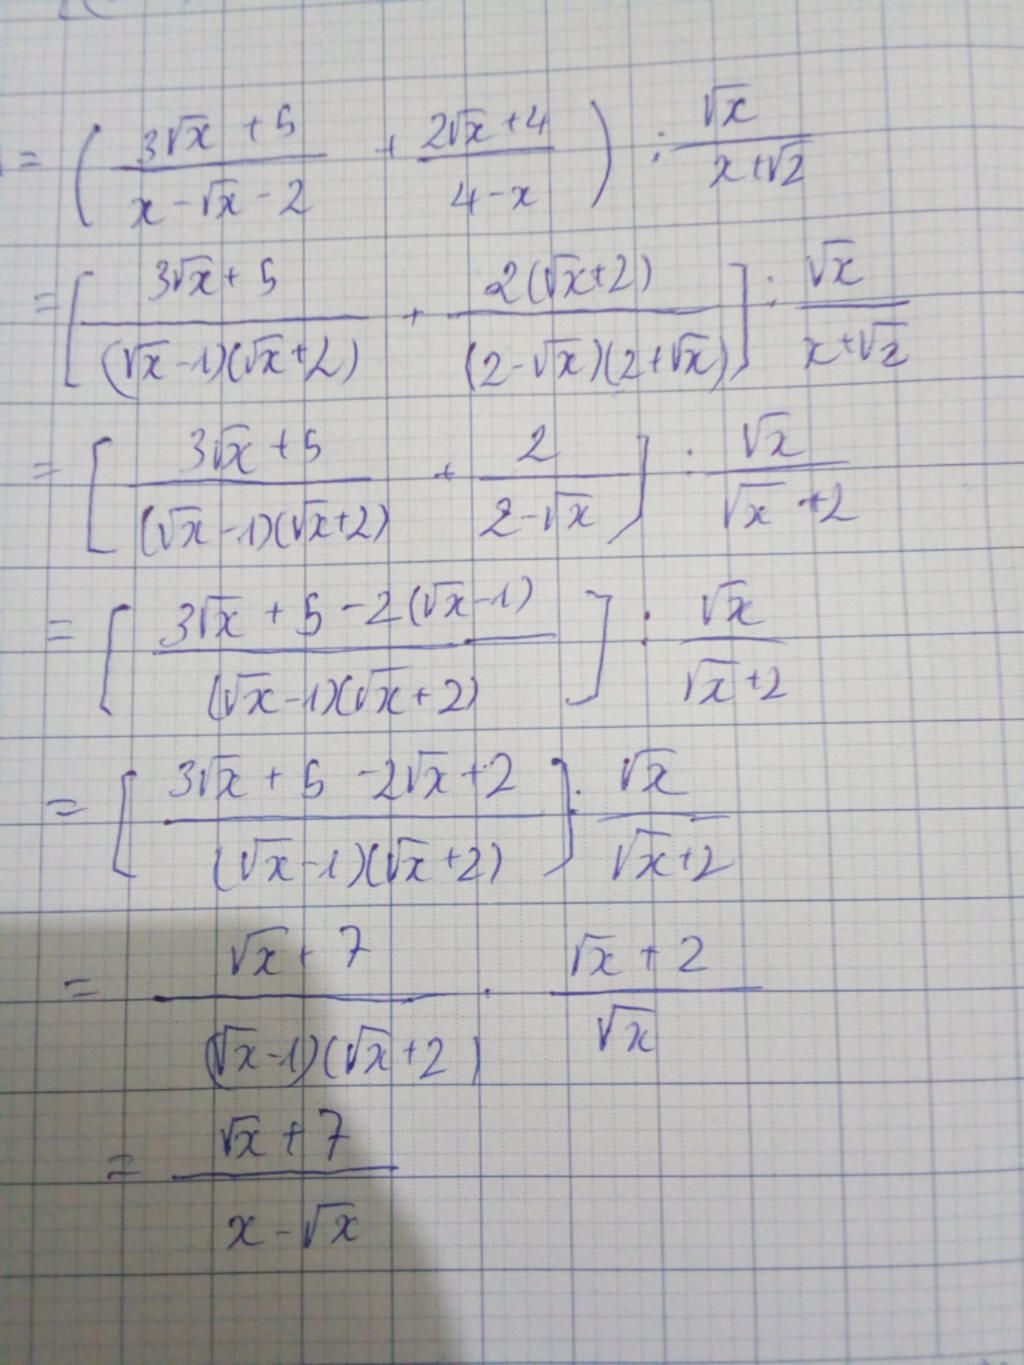 = ( (3√x + 5)/(x - √x - 2) + (2√x + 4)/(4 - x) ) : √x/(x + √2)
= [ (3√x + 5)/((√x - 1)(√x + 2)) + 2(√x + 2)/((2 - √x)(2 + √x)) ] : √x/(x + √2)
= [ (3√x + 5)/((√x - 1)(√x + 2)) + 2/(2 - √x) ] : √x/(√x + 2)
= [ (3√x + 5 - 2(√x - 1))/((√x - 1)(√x + 2)) ] : √x/(√x + 2)
= [ (3√x + 5 - 2√x + 2)/((√x - 1)(√x + 2)) ] : √x/(√x + 2)
= (√x + 7)/((√x - 1)(√x + 2)) . (√x + 2)/√x
= (√x + 7)/(x - √x)